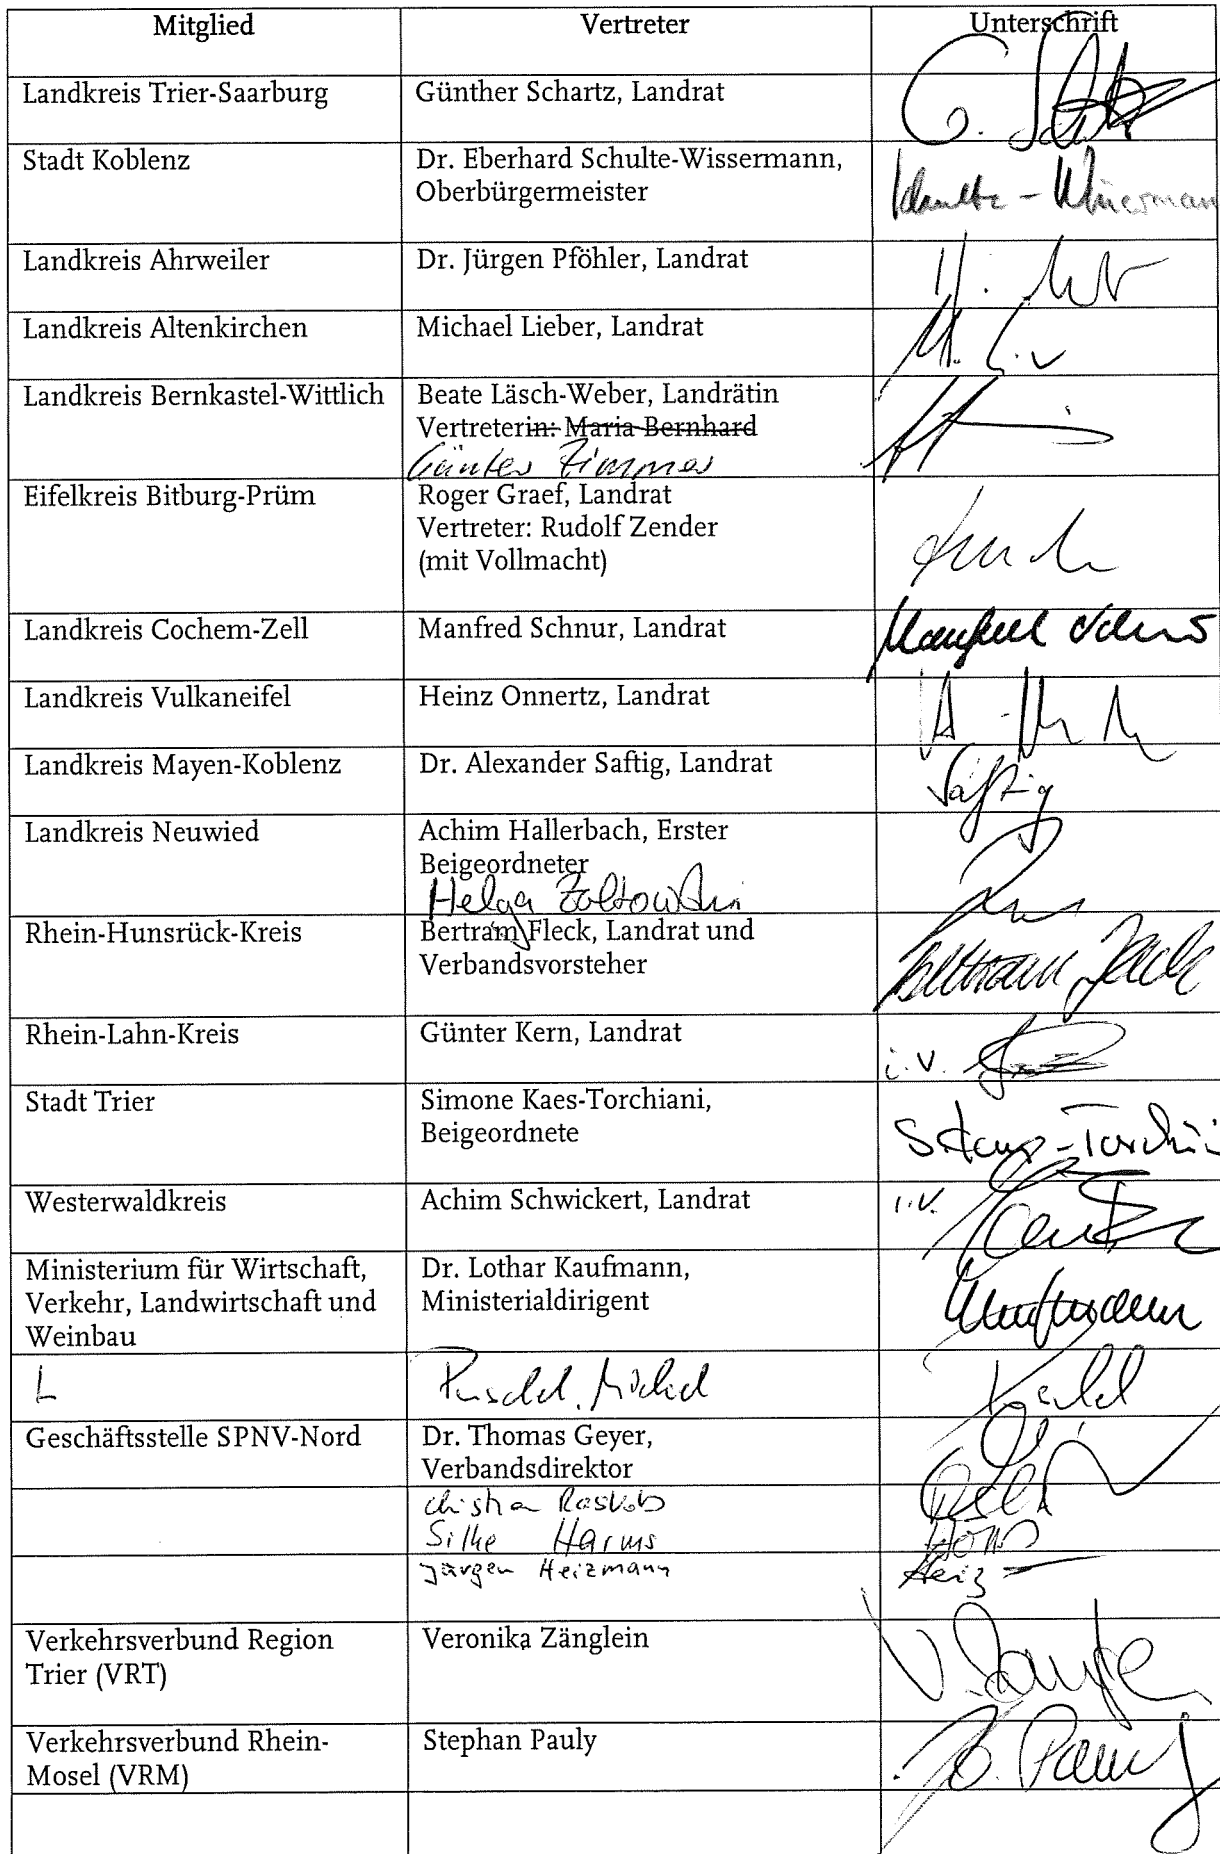 Mitglied Vertreter Unterschrift
Landkreis Trier-Saarburg Günther Schartz, Landrat
Stadt Koblenz Dr. Eberhard Schulte-Wissermann,
Oberbürgermeister
Landkreis Ahrweiler Dr. Jürgen Pföhler, Landrat
Landkreis Altenkirchen Michael Lieber, Landrat
Landkreis Bernkastel-Wittlich Beate Läsch-Weber, Landrätin
Vertreterin: Maria Bernhard
Günter Zimmer
Eifelkreis Bitburg-Prüm Roger Graef, Landrat
Vertreter: Rudolf Zender
(mit Vollmacht)
Landkreis Cochem-Zell Manfred Schnur, Landrat Manfred Schnur
Landkreis Vulkaneifel Heinz Onnertz, Landrat
Landkreis Mayen-Koblenz Dr. Alexander Saftig, Landrat Saftig
Landkreis Neuwied Achim Hallerbach, Erster
Beigeordneter
Helga
Rhein-Hunsrück-Kreis Bertram Fleck, Landrat und Bertram Fleck
Verbandsvorsteher
Rhein-Lahn-Kreis Günter Kern, Landrat i.V.
Stadt Trier Simone Kaes-Torchiani,
Beigeordnete
Westerwaldkreis Achim Schwickert, Landrat i.V.
Ministerium für Wirtschaft, Dr. Lothar Kaufmann, Kaufmann
Verkehr, Landwirtschaft und Ministerialdirigent
Weinbau
Geschäftsstelle SPNV-Nord Dr. Thomas Geyer,
Verbandsdirektor
Silke Harms
Jürgen Heizmann Heiz
Verkehrsverbund Region Veronika Zänglein
Trier (VRT)
Verkehrsverbund Rhein- Stephan Pauly Pauly
Mosel (VRM)